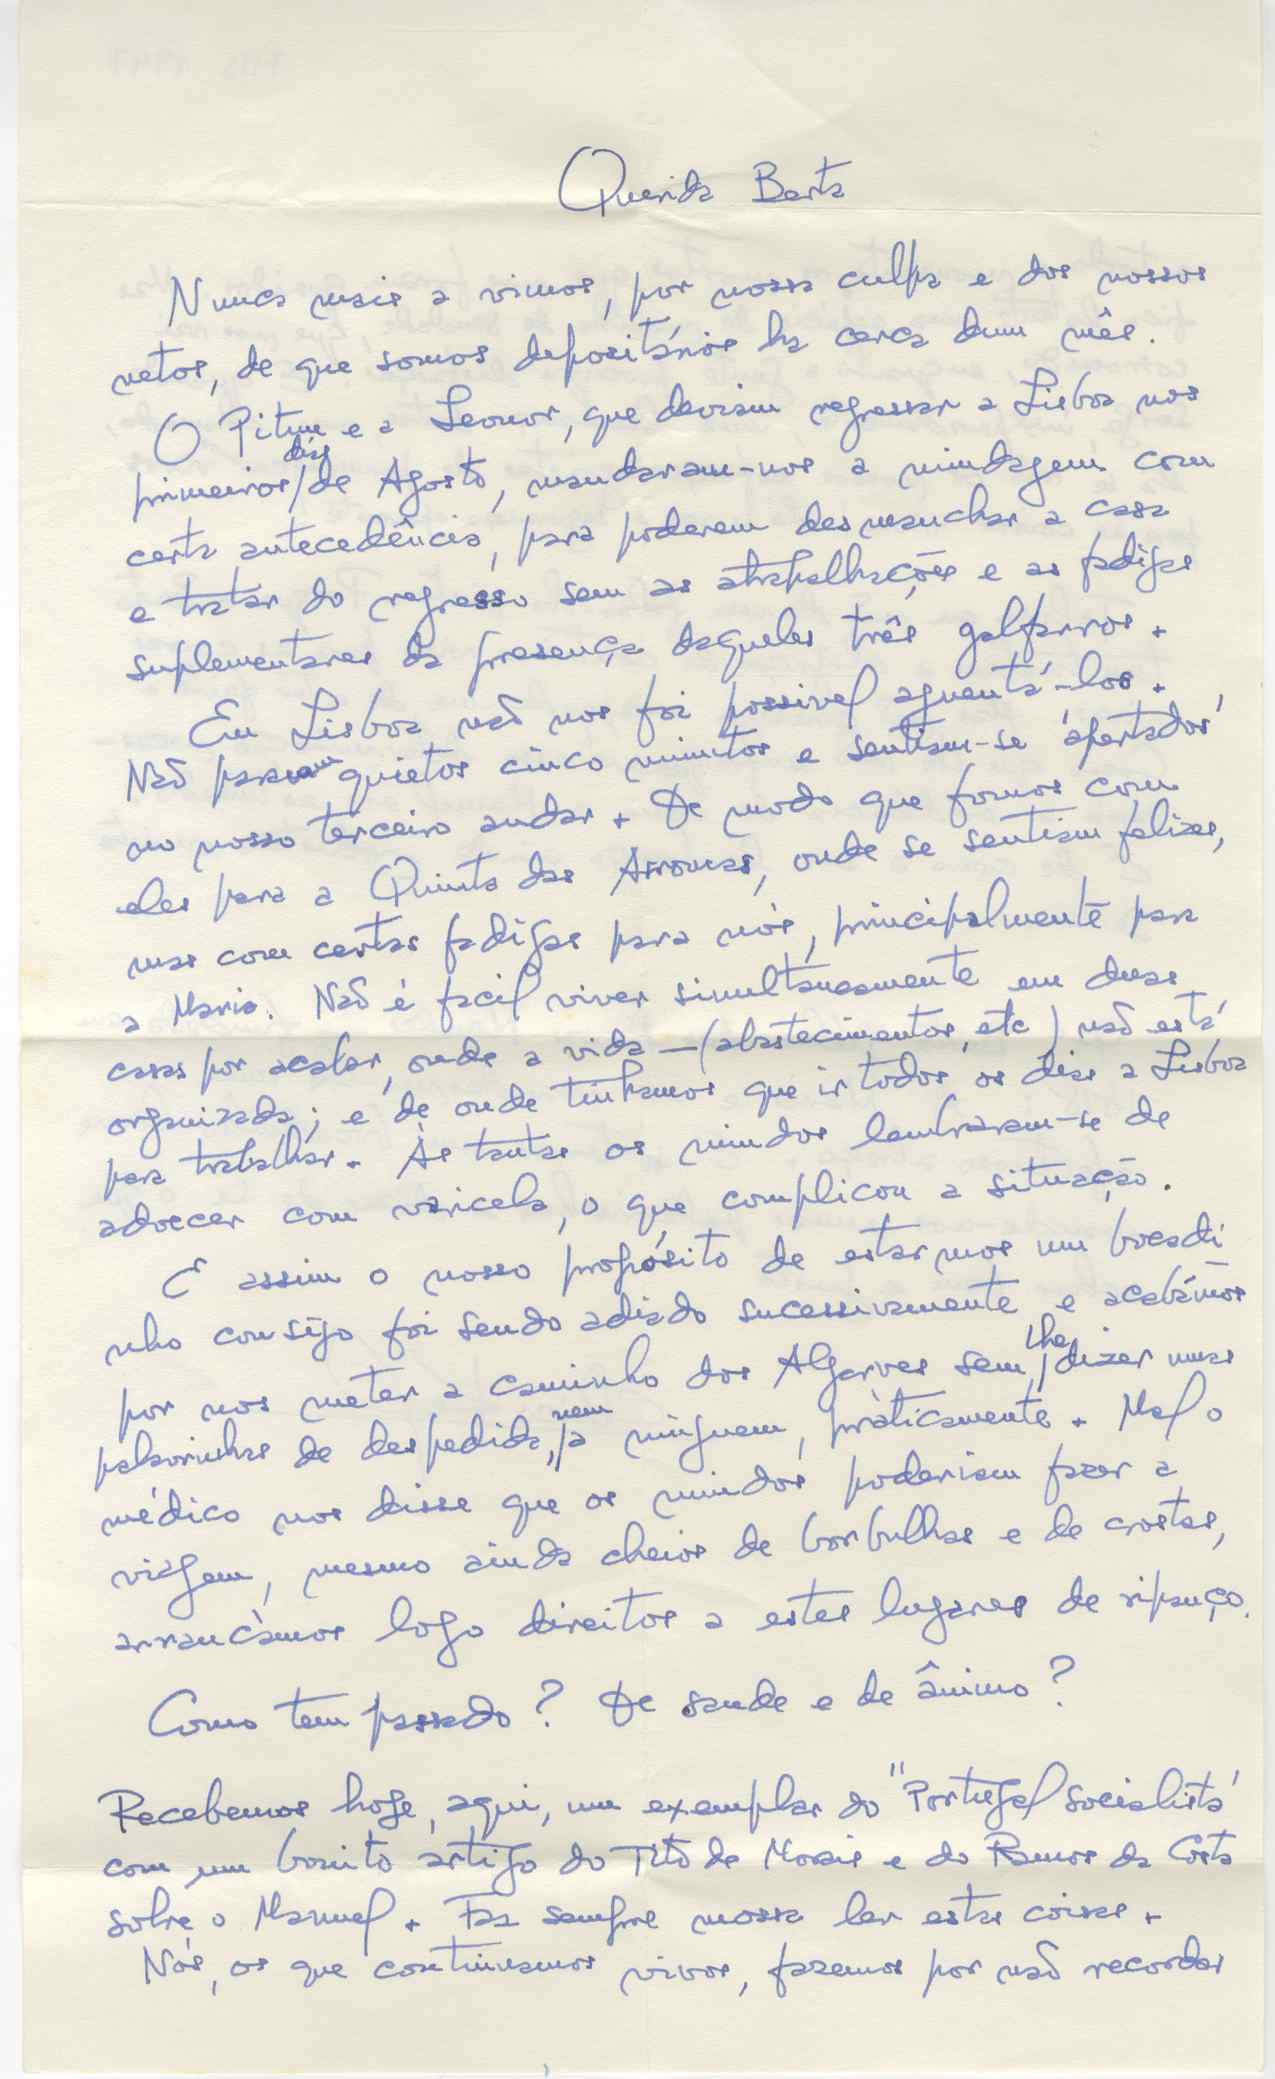 Querida Berta
Nunca mais a vimos, por nossa culpa e dos nossos
netos, de que somos depositários ha cerca dum mês.
O Pitum e a Leonor, que deviam regressar a Lisboa nos
primeiros dias de Agosto, mandaram-nos a miudagem com
certa antecedência, para poderem desmanchar a casa
e tratar do regresso sem as atrapalhações e as fadigas
suplementares da presença daqueles três galfarros.
Em Lisboa não nos foi possivel aguentá-los.
Não param quietos cinco minutos e sentiam-se 'apertados'
no nosso terceiro andar. De modo que fomos com
eles para a Quinta das Arromas, onde se sentiam felizes,
mas com certas fadigas para nós, principalmente para
a Maria. Não é facil viver simultaneamente em duas
casas por acabar, onde a vida — (abastecimentos, etc) não está
organizada; e de onde tinhamos que ir todos os dias a Lisboa
para trabalhar. Às tantas os miudos lembraram-se de
adoecer com varicela, o que complicou a situação.
E assim o nosso propósito de estarmos um bocadi
nho consigo foi sendo adiado sucessivamente e acabámos
por nos meter a caminho dos Algarves sem lhe dizer umas
palavrinhas de despedida, nem a ninguem, pràticamente. Mal o
médico nos disse que os miudos poderiam fazer a
viagem, mesmo ainda cheios de borbulhas e de crostas,
arrancámos logo direitos a estes lugares de ripanço.
Como tem passado? De saude e de ânimo?
Recebemos hoje, aqui, um exemplar do "Portugal socialista"
com um bonito artigo do Tito de Morais e do Ramos da Costa
sobre o Manuel. Faz sempre mossa ler estas coisas.
Nós, os que continuamos vivos, fazemos por não recordar